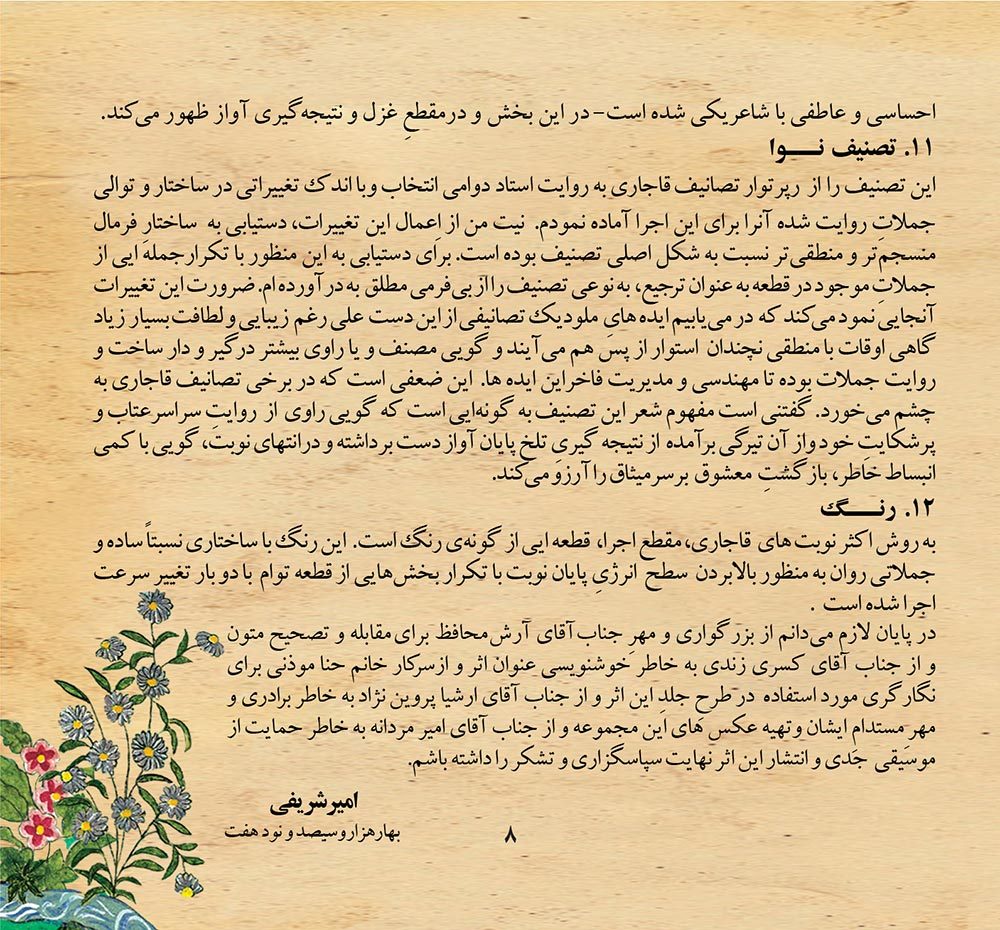 احساسی و عاطفی با شاعر یکی شده است– در این بخش و در مقطعِ غزل و نتیجه‌گیری آواز ظهور می‌کند.
۱۱. تصنیف نـــوا
این تصنیف را از رپرتوار تصانیف قاجاری به روایت استاد دوامی انتخاب و با اندک تغییراتی در ساختار و توالی
جملاتِ روایت شده آنرا برای این اجرا آماده نمودم. نیت من از اعمال این تغییرات، دستیابی به ساختارِ فرمال
منسجم‌تر و منطقی‌تر نسبت به شکل اصلی تصنیف بوده است. برای دستیابی به این منظور با تکرار جمله ایی از
جملاتِ موجود در قطعه به عنوان ترجیع، به نوعی تصنیف را از بی‌فرمی مطلق به در آورده ام. ضرورت این تغییرات
آنجایی نمود می‌کند که در می‌یابیم ایده های ملودیک تصانیفی از این دست علی رغم زیبایی و لطافت بسیار زیاد
گاهی اوقات با منطقی نچندان استوار از پسِ هم می‌آیند و گویی مصنف و یا راوی بیشتر درگیر و دار ساخت و
روایت جملات بوده تا مهندسی و مدیریت فاخر این ایده ها. این ضعفی است که در برخی تصانیف قاجاری به
چشم می‌خورد. گفتنی است مفهوم شعر این تصنیف به گونه‌ایی است که گویی راوی از روایتِ سراسر عتاب و
پرشکایت خود و از آن تیرگی برآمده از نتیجه گیری تلخ پایان آواز دست برداشته و در انتهای نوبت، گویی با کمی
انبساط خاطر، بازگشتِ معشوق بر سر میثاق را آرزو می‌کند.
۱۲. رنـــگ
به روش اکثر نوبت‌های قاجاری، مقطع اجرا، قطعه ایی از گونه‌ی رنگ است. این رنگ با ساختاری نسبتاً ساده و
جملاتی روان به منظور بالابردن سطح انرژیِ پایان نوبت با تکرار بخش‌هایی از قطعه توام با دو بار تغییر سرعت
اجرا شده است .
در پایان لازم می‌دانم از بزرگواری و مهرِ جناب آقای آرش محافظ برای مقابله و تصحیح متون
و از جناب آقای کسری زندی به خاطر خوشنویسی عنوان اثر و از سرکار خانم حنا موذنی برای
نگارگری مورد استفاده در طرح جلدِ این اثر و از جناب آقای ارشیا پروین نژاد به خاطر برادری و
مهر مستدام ایشان و تهیه عکس های این مجموعه و از جناب آقای امیر مردانه به خاطر حمایت از
موسیقی جدی و انتشار این اثر نهایت سپاسگزاری و تشکر را داشته باشم.
امیر شریفی
بهار هزار و سیصد و نود هفت
۸